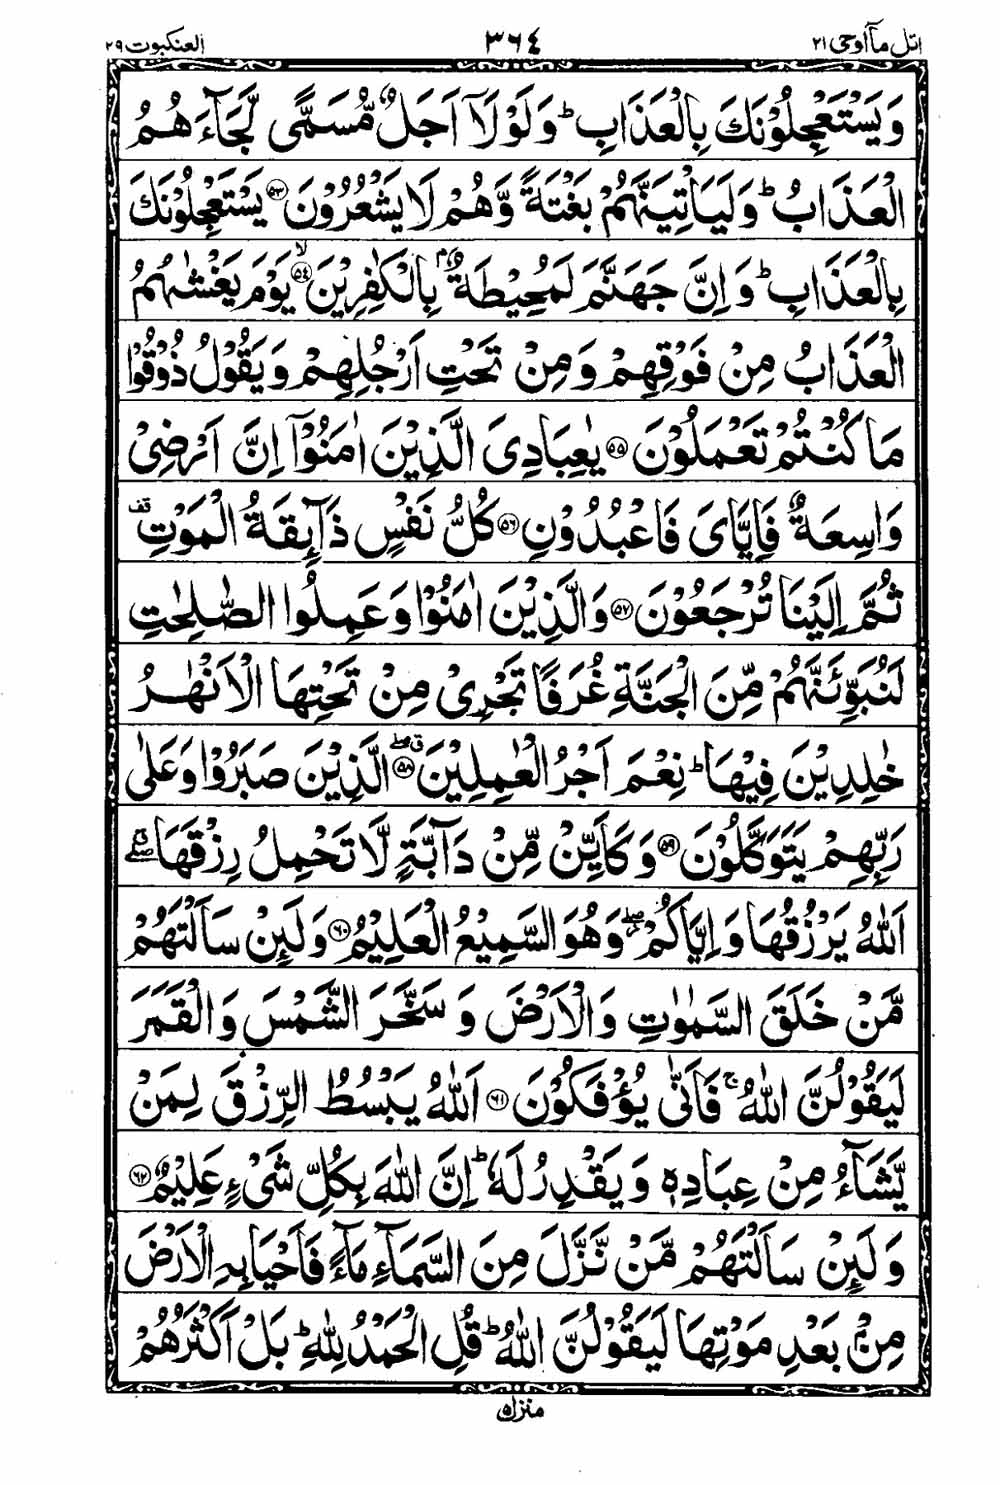 اتل مآ اوحی ۲۱ ۳۶۴ العنکبوت ۲۹
وَیَسْتَعْجِلُوْنَكَ بِالْعَذَابِ ؕ وَلَوْلَاۤ اَجَلٌ مُّسَمًّی لَّجَآءَهُمُ
الْعَذَابُ ؕ وَلَیَاْتِیَنَّهُمْ بَغْتَةً وَّهُمْ لَا یَشْعُرُوْنَ ۵۳ یَسْتَعْجِلُوْنَكَ
بِالْعَذَابِ ؕ وَاِنَّ جَهَنَّمَ لَمُحِیْطَةٌۢ بِالْكٰفِرِیْنَ ۙ۵۴ یَوْمَ یَغْشٰىهُمُ
الْعَذَابُ مِنْ فَوْقِهِمْ وَمِنْ تَحْتِ اَرْجُلِهِمْ وَیَقُوْلُ ذُوْقُوْا
مَا كُنْتُمْ تَعْمَلُوْنَ ۵۵ یٰعِبَادِیَ الَّذِیْنَ اٰمَنُوْۤا اِنَّ اَرْضِیْ
وَاسِعَةٌ فَاِیَّایَ فَاعْبُدُوْنِ ۵۶ كُلُّ نَفْسٍ ذَآىِٕقَةُ الْمَوْتِ قف
ثُمَّ اِلَیْنَا تُرْجَعُوْنَ ۵۷ وَالَّذِیْنَ اٰمَنُوْا وَعَمِلُوا الصّٰلِحٰتِ
لَنُبَوِّئَنَّهُمْ مِّنَ الْجَنَّةِ غُرَفًا تَجْرِیْ مِنْ تَحْتِهَا الْاَنْهٰرُ
خٰلِدِیْنَ فِیْهَا ؕ نِعْمَ اَجْرُ الْعٰمِلِیْنَ ۵۸ الَّذِیْنَ صَبَرُوْا وَعَلٰی
رَبِّهِمْ یَتَوَكَّلُوْنَ ۵۹ وَكَاَیِّنْ مِّنْ دَآبَّةٍ لَّا تَحْمِلُ رِزْقَهَا
اَللّٰهُ یَرْزُقُهَا وَاِیَّاكُمْ ۖ وَهُوَ السَّمِیْعُ الْعَلِیْمُ ۶۰ وَلَىِٕنْ سَاَلْتَهُمْ
مَّنْ خَلَقَ السَّمٰوٰتِ وَالْاَرْضَ وَسَخَّرَ الشَّمْسَ وَالْقَمَرَ
لَیَقُوْلُنَّ اللّٰهُ ۚ فَاَنّٰی یُؤْفَكُوْنَ ۶۱ اَللّٰهُ یَبْسُطُ الرِّزْقَ لِمَنْ
یَّشَآءُ مِنْ عِبَادِهٖ وَیَقْدِرُ لَهٗ ؕ اِنَّ اللّٰهَ بِكُلِّ شَیْءٍ عَلِیْمٌ ۶۲
وَلَىِٕنْ سَاَلْتَهُمْ مَّنْ نَّزَّلَ مِنَ السَّمَآءِ مَآءً فَاَحْیَا بِهِ الْاَرْضَ
مِنْۢ بَعْدِ مَوْتِهَا لَیَقُوْلُنَّ اللّٰهُ ؕ قُلِ الْحَمْدُ لِلّٰهِ ؕ بَلْ اَكْثَرُهُمْ
منزل ۵